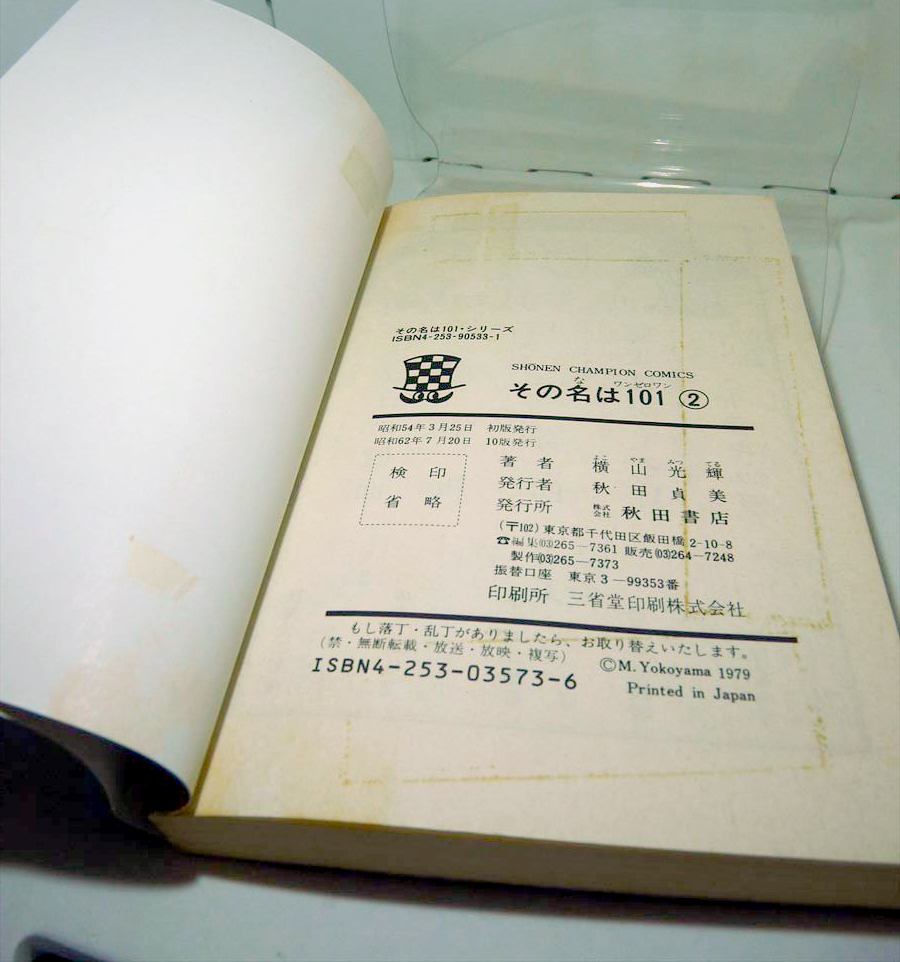 その名は101・シリーズ
ISBN4-253-90533-1
SHŌNEN CHAMPION COMICS
な ワンゼロワン
その名は101 ②
昭和54年3月25日 初版発行
昭和62年7月20日 10版発行
検印
省略
よこ やま みつ てる
著者 横山光輝
発行者 秋田貞美
発行所 株式会社 秋田書店
(〒102) 東京都千代田区飯田橋2-10-8
☎編集(03)265-7361 販売(03)264-7248
製作(03)265-7373
振替口座 東京3-99353番
印刷所 三省堂印刷株式会社
もし落丁・乱丁がありましたら、お取り替えいたします。
(禁・無断転載・放送・放映・複写)
ISBN4-253-03573-6
©M. Yokoyama 1979
Printed in Japan